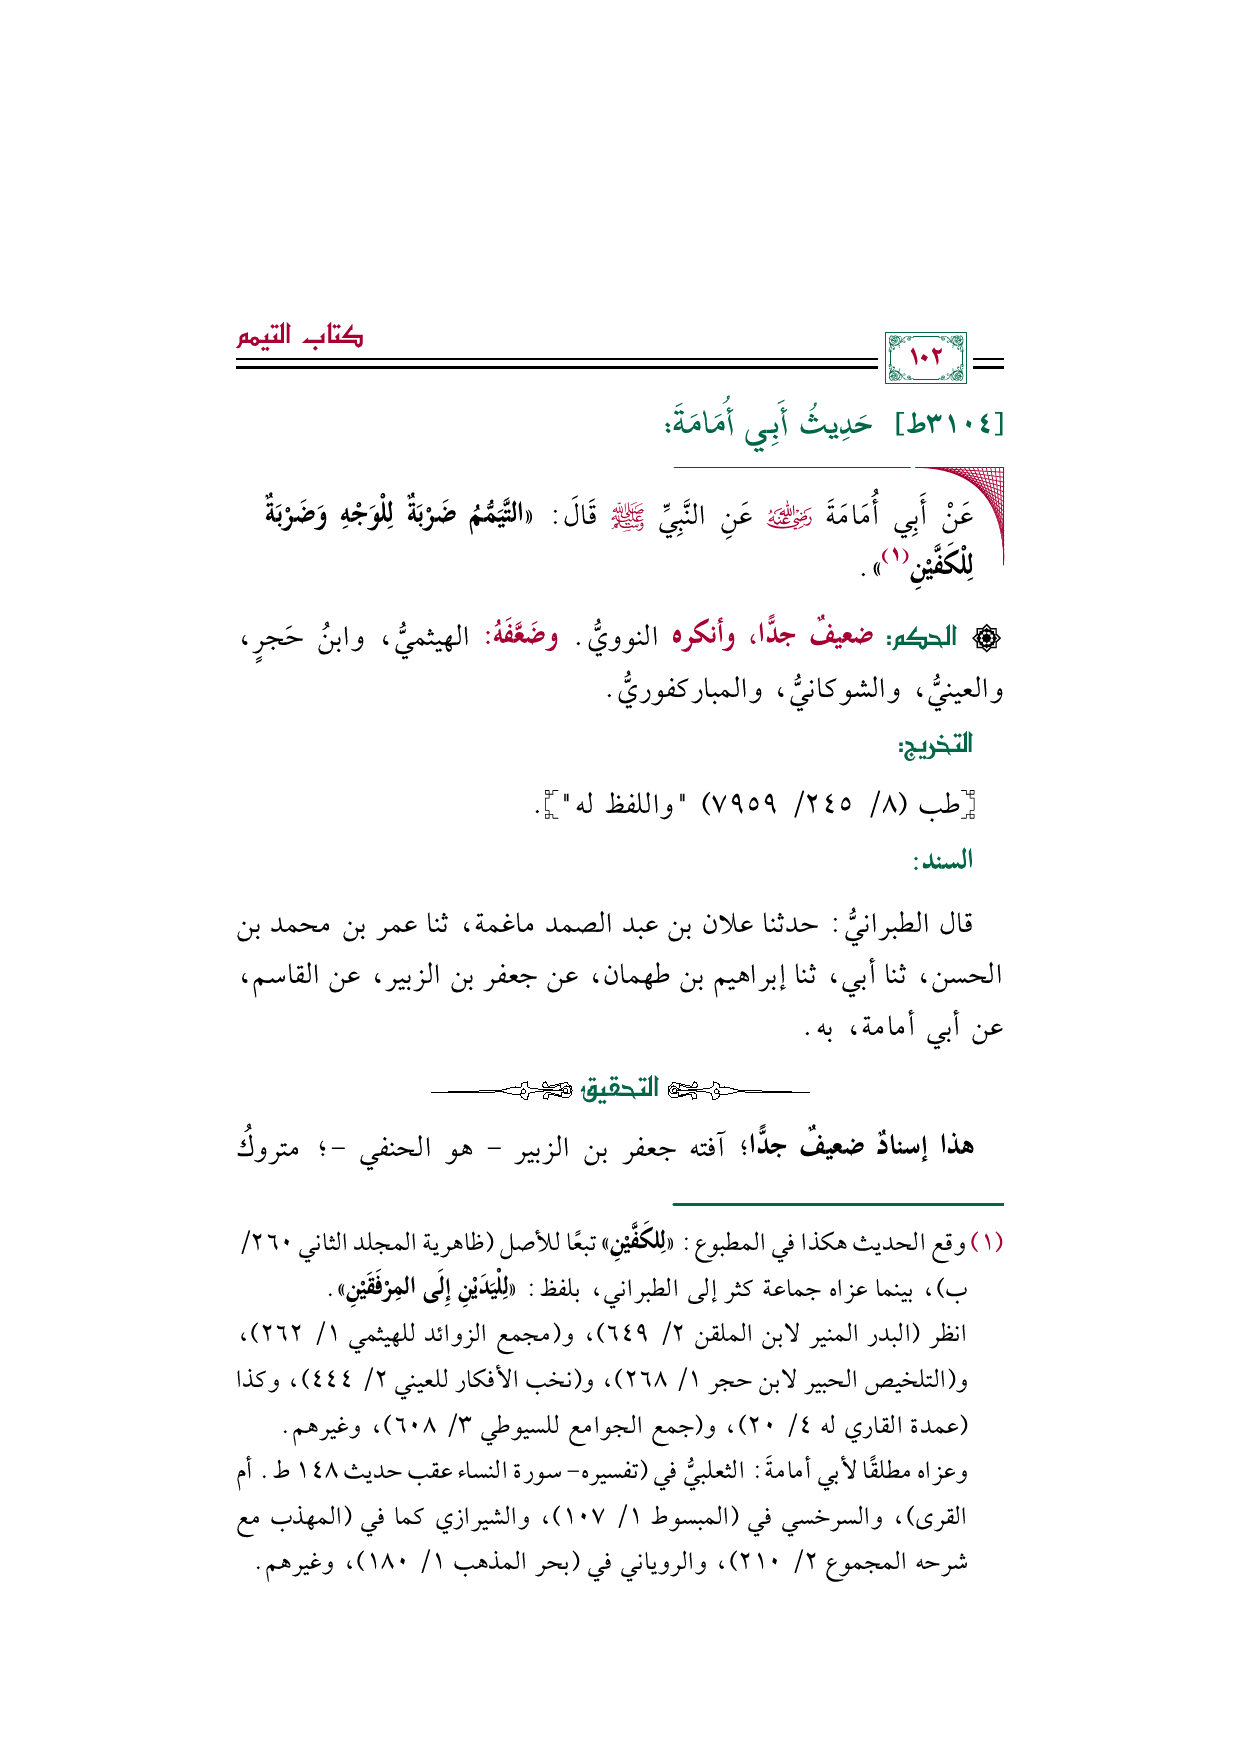 كتاب التيمم
١٠٢
[٣١٠٤ط] حَدِيثُ أَبِي أُمَامَةَ:
عَنْ أَبِي أُمَامَةَ رضي الله عنه عَنِ النَّبِيِّ ﷺ قَالَ: «التَّيَمُّمُ ضَرْبَةٌ لِلْوَجْهِ وَضَرْبَةٌ
لِلْكَفَّيْنِ(١)».
الحكم: ضعيفٌ جدًّا، وأنكره النوويُّ. وضَعَّفَهُ: الهيثميُّ، وابنُ حَجرٍ،
والعينيُّ، والشوكانيُّ، والمباركفوريُّ.
التخريج:
[طب (٨/ ٢٤٥/ ٧٩٥٩) "واللفظ له"].
السند:
قال الطبرانيُّ: حدثنا علان بن عبد الصمد ماغمة، ثنا عمر بن محمد بن
الحسن، ثنا أبي، ثنا إبراهيم بن طهمان، عن جعفر بن الزبير، عن القاسم،
عن أبي أمامة، به.
التحقيق
هذا إسنادٌ ضعيفٌ جدًّا؛ آفته جعفر بن الزبير - هو الحنفي -؛ متروكُ
(١) وقع الحديث هكذا في المطبوع: «لِلكَفَّيْنِ» تبعًا للأصل (ظاهرية المجلد الثاني ٢٦٠/
ب)، بينما عزاه جماعة كثر إلى الطبراني، بلفظ: «لِلْيَدَيْنِ إِلَى المِرْفَقَيْنِ».
انظر (البدر المنير لابن الملقن ٢/ ٦٤٩)، و(مجمع الزوائد للهيثمي ١/ ٢٦٢)،
و(التلخيص الحبير لابن حجر ١/ ٢٦٨)، و(نخب الأفكار للعيني ٢/ ٤٤٤)، وكذا
(عمدة القاري له ٤/ ٢٠)، و(جمع الجوامع للسيوطي ٣/ ٦٠٨)، وغيرهم.
وعزاه مطلقًا لأبي أمامةَ: الثعلبيُّ في (تفسيره- سورة النساء عقب حديث ١٤٨ ط. أم
القرى)، والسرخسي في (المبسوط ١/ ١٠٧)، والشيرازي كما في (المهذب مع
شرحه المجموع ٢/ ٢١٠)، والروياني في (بحر المذهب ١/ ١٨٠)، وغيرهم.